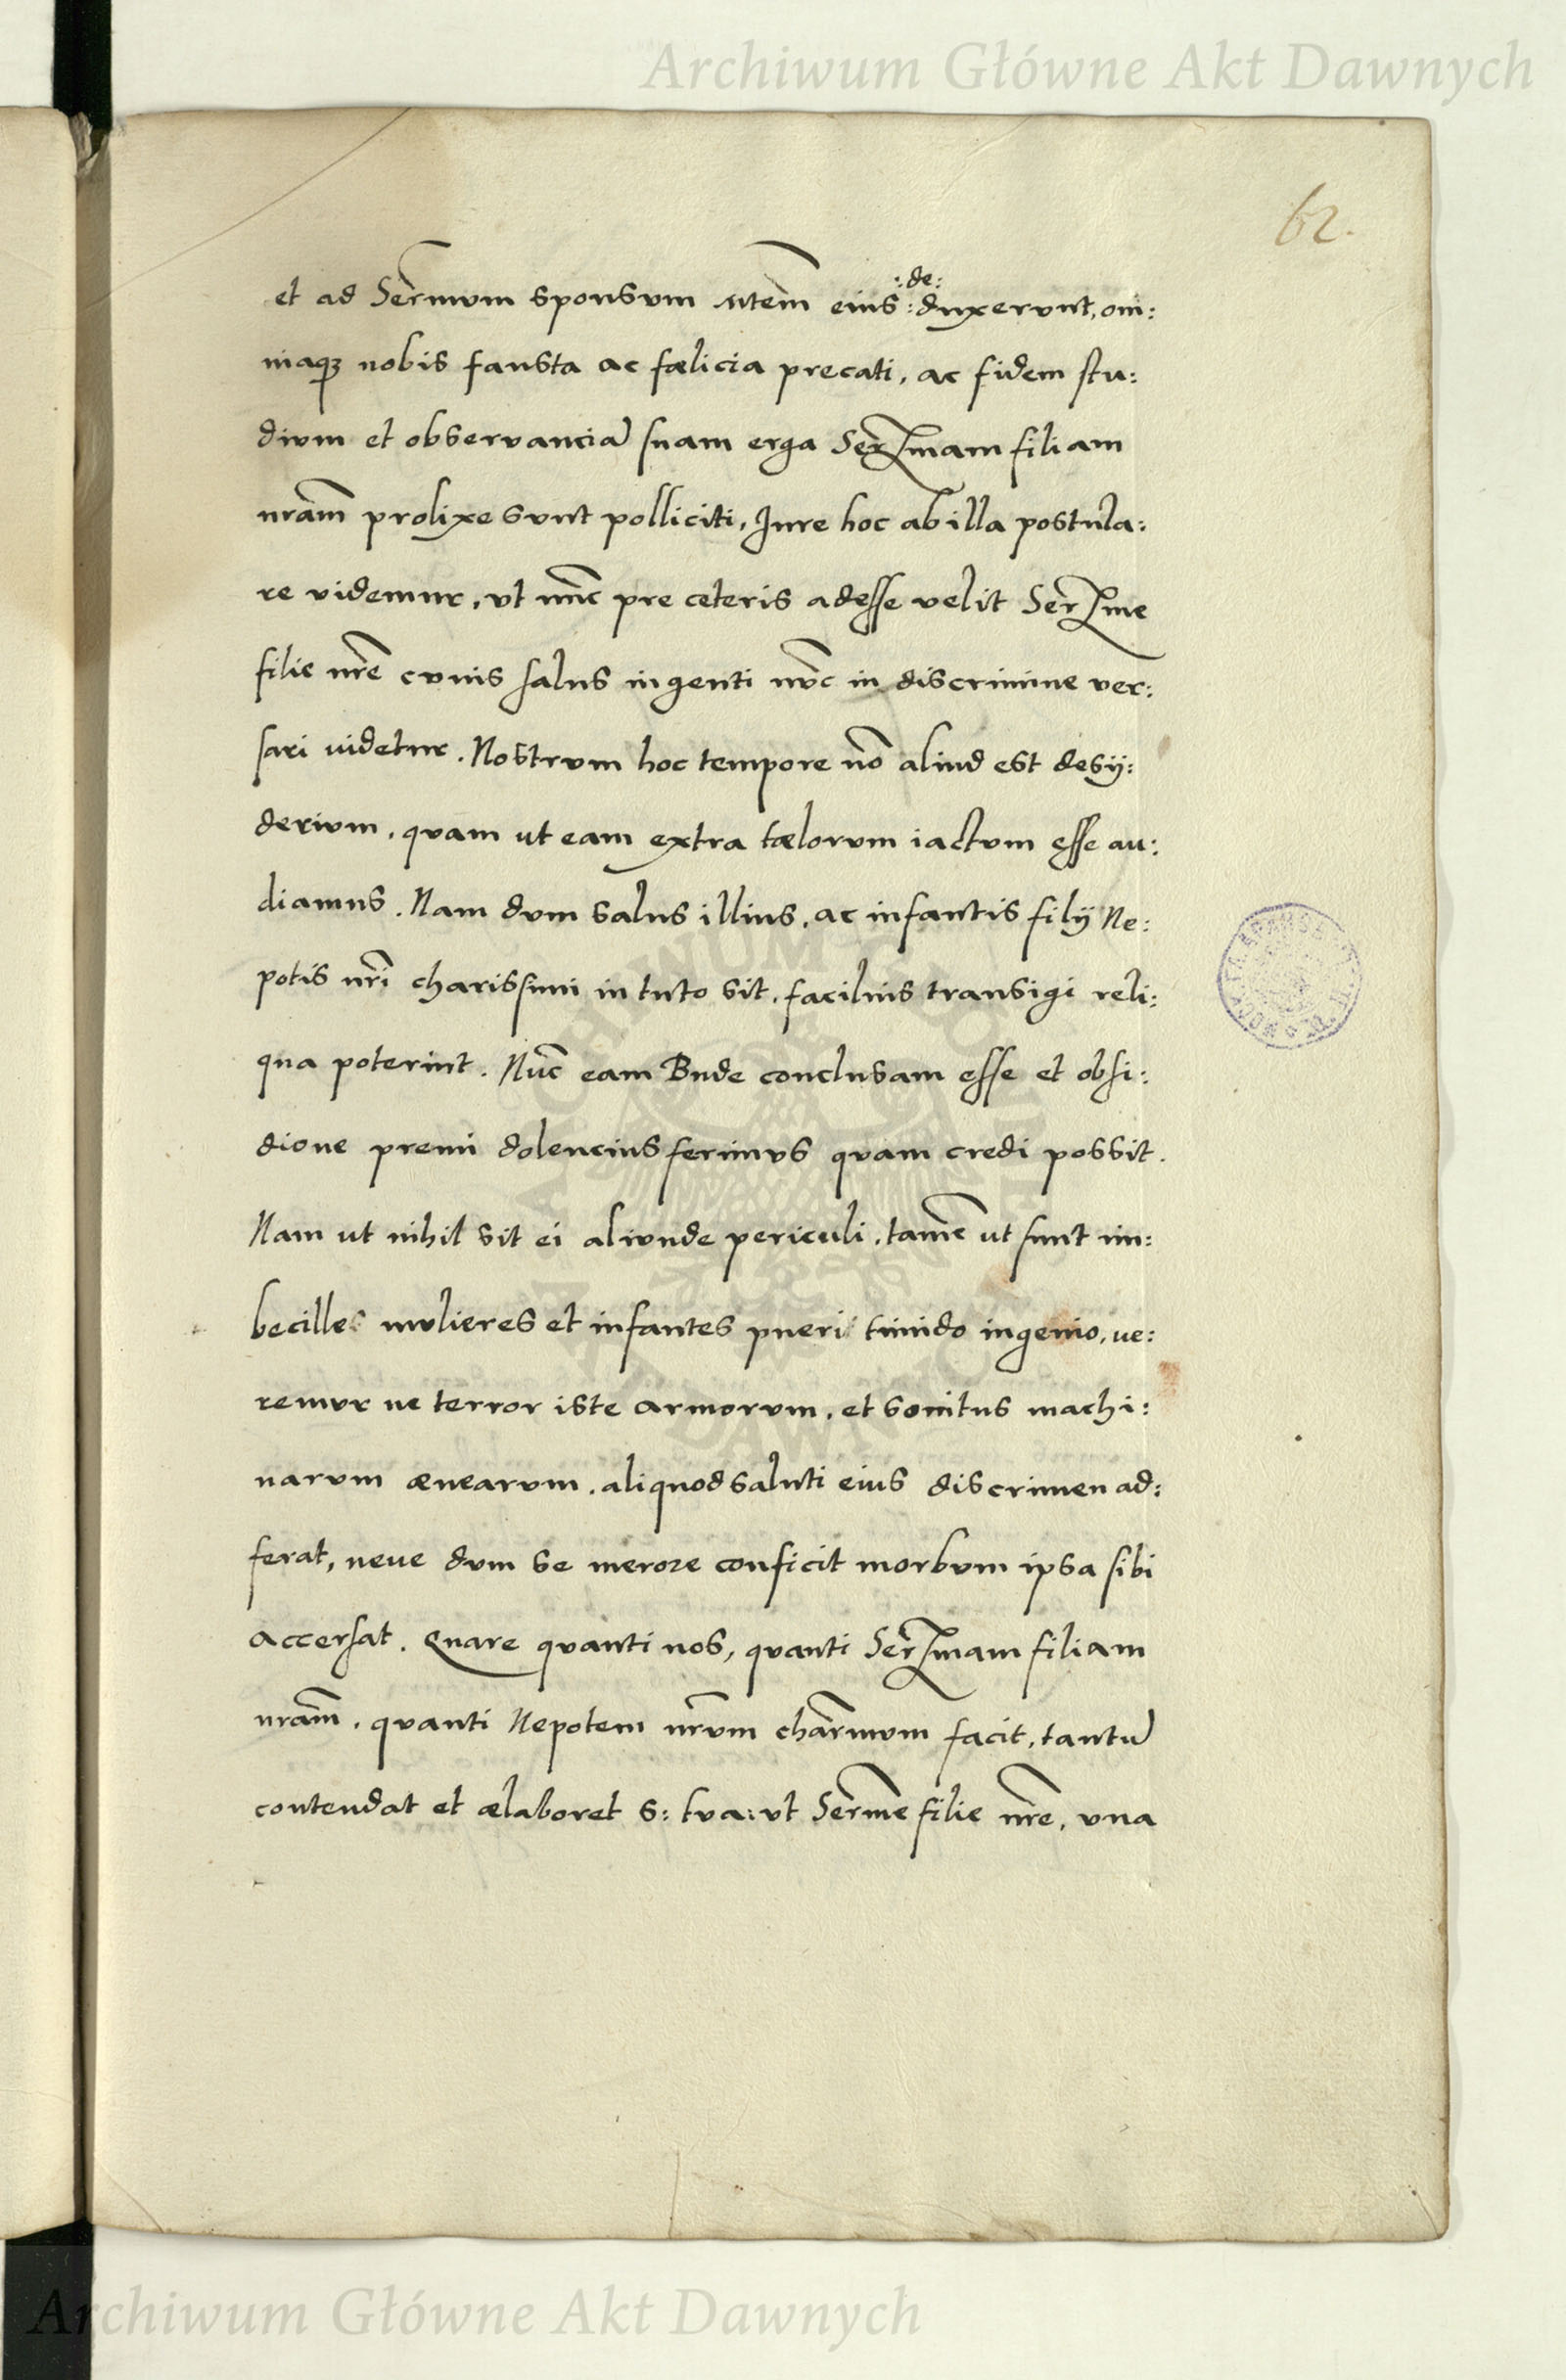 Archiwum Główne Akt Dawnych
62.
:de:
et ad Sermum sponsum Mtem eius :duxerunt, om:
niaqȝ nobis fausta ac fælicia precati, ac fidem stu:
dium et obseruancia suam erga Serzmam filiam
nram prolixe sunt polliciti, Jure hoc ab illa postula:
re videmur, vt nunc pre ceteris adesse velit Serzme
filie nre cuuis salus ingenti nuc in discrimine ver:
sari uidetur. Nostrum hoc tempore no aliud est desy:
derium, quam ut eam extra tælorum iactum esse au:
diamus. Nam dum salus illius, ac infantis filij Ne:
potis nri charissimi in tuto sit, facilius transigi reli:
qua poterint. Nuc eam Bude conclusam esse et obsi:
dione premi dolencius ferimus quam credi possit.
Nam ut nihil sit ei aliunde periculi, tame ut sunt im:
becilles mulieres et infantes pueri timido ingenio, ue:
remur ne terror iste armorum, et sonitus machi:
narum ænearum, aliquod saluti eius discrimen ad:
ferat, neue dum se merore conficit morbum ipsa sibi
accersat. Quare quanti nos, quanti Serzmam filiam
nram, quanti Nepotem nrum charmum facit, tantu
contendat et ælaboret S: tua: vt Serme filie nre, vna
Archiwum Główne Akt Dawnych